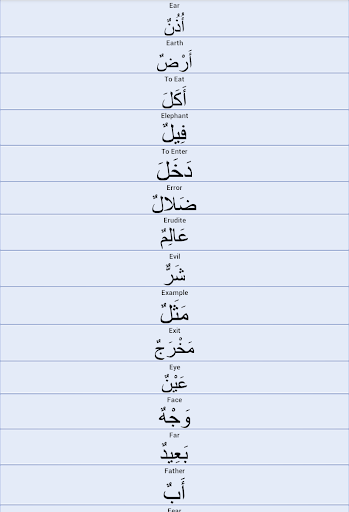 Ear
أُذُنٌ
Earth
أَرْضٌ
To Eat
أَكَلَ
Elephant
فِيلٌ
To Enter
دَخَلَ
Error
ضَلَالٌ
Erudite
عَالِمٌ
Evil
شَرٌّ
Example
مَثَلٌ
Exit
مَخْرَجٌ
Eye
عَيْنٌ
Face
وَجْهٌ
Far
بَعِيدٌ
Father
أَبٌ
Fear